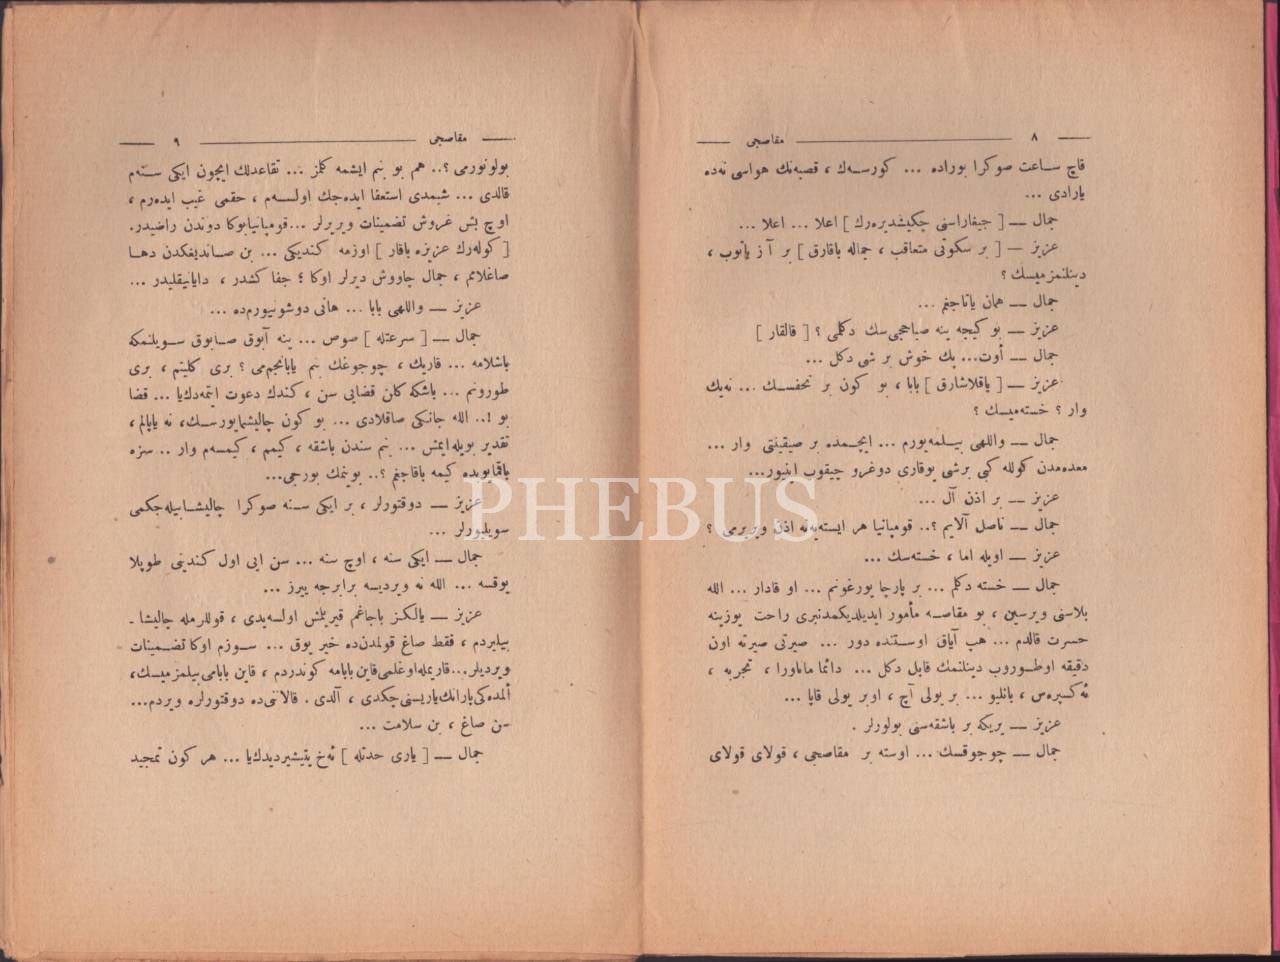 ٨ مقاصجی
قاچ ساعت صوكرا بوراده ... كورسه‌ك ، قصبه‌نك هواسی نه‌ده
یارادی ...
جمال — [ جیغاراسنی چكیشدیره‌رك ] اعلا ... اعلا ...
عزیز — [ بر سكوتی متعاقب ، جماله باقارق ] بر آز یاتوب ،
دیكلنمز میسك ؟
جمال — همان یاتاجغم ...
عزیز — بو كیجه ینه صباحجی‌سك دكلمی ؟ [ قالقار ]
جمال — أوت... پك خوش بر شی دكل ...
عزیز — [ یاقلاشارق ] بابا ، بو كون بر تحفسك ... نه‌یك
وار ؟ خسته‌میسك ؟
جمال — واللهی بیلمه‌یورم ... ایچمده بر صیقینتی وار ...
معده‌مدن كولله كبی برشی یوقاری دوغرو چیقوب اینیور...
عزیز — بر اذن آل ...
جمال — ناصل آلایم ؟.. قومپانیا هر ایسته‌یه‌نه اذن ویریرمی ؟
عزیز — اویله اما ، خسته‌سك ...
جمال — خسته دكلم ... بر پارچا یورغونم ... او قادار ... الله
بلاسنی ویرسین ، بو مقاصه مأمور ایدیلدیكمدنبری راحت یوزینه
حسرت قالدم ... هپ آیاق اوستنده دور ... صیرتی صیرته اون
دقیقه اوطوروب دیكلنمك قابل دكل ... دائما مانه‌اورا ، تجربه ،
ئه‌كسپره‌س ، بانلیو ... بر یولی آچ ، اوبر یولی قاپا ...
عزیز — یریكه بر باشقه‌سنی بولورلر .
جمال — چوجوقسك ... اوسته بر مقاصجی ، قولای قولای
مقاصجی ٩
بولونورمی ؟.. هم بو بنم ایشمه كلمز ... تقاعدلك ایچون ایكی سنه‌م
قالدی ... شیمدی استعفا ایده‌جك اولسه‌م ، حقمی غیب ایده‌رم ،
اوچ بش غروش تضمینات ویریرلر ... قومپانیا بوكا دوندن راضیدر.
[ كوله‌رك عزیزه باقار ] اوزمه كندیكی ... بن صاندیغكدن دها
صاغلامم ، جمال چاووش دیرلر اوكا ؛ جفا كشدر ، دایانیقلیدر ...
عزیز — واللهی بابا ... هانی دوشونیورم‌ده ...
جمال — [ سرعتله ] صوص ... ینه آبوق صابوق سویلنمكه
باشلامه ... قاریك ، چوجوغك بنم یابانجم‌می ؟ بری كلینم ، بری
طورونم ... باشكه كلن قضایی سن ، كندك دعوت ایتمه‌دك‌یا ... قضا
بو !.. الله جانكی صاقلادی ... بو كون چالیشمایورسك، نه یاپالم ،
تقدیر بویله ایمش ... بنم سندن باشقه ، كیمم ، كیمسه‌م وار .. سزه
باقمایوبده كیمه باقاجغم ؟.. بو بنمك بورجی...
عزیز — دوقتورلر ، بر ایكی سنه صوكرا چالیشابیله‌جكمی
سویلیورلر ...
جمال — ایكی سنه ، اوچ سنه ... سن ایی اول كندینی طوپلا
یوقسه ... الله نه ویردیسه برابرجه ییرز ...
عزیز — یالكز باجاغم قیریلمش اولسه‌یدی ، قوللرمله چالیشا-
بیلیردم ، فقط صاغ قولمدن‌ده خیر یوق ... سوزم اوكا تضمینات
ویردیلر... قاریمله اوغلمی قاین بابامه كوندردم ، قاین بابامی بیلمز میسك،
ألمده‌كی پارانك یاریسنی چكدی ، آلدی . قالاننی‌ده دوقتورلره ویردم...
سن صاغ ، بن سلامت ...
جمال — [ یاری حدتله ] نه‌خ یتیشیردیدك‌یا ... هر كون تمجید
PHEBUS